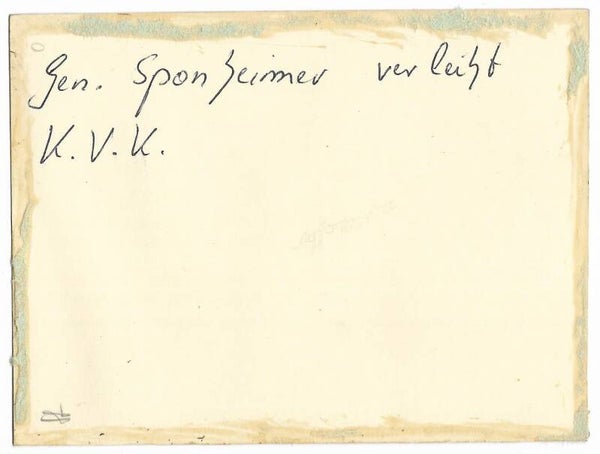 Gen. Sponheimer verleiht
K.V.K.